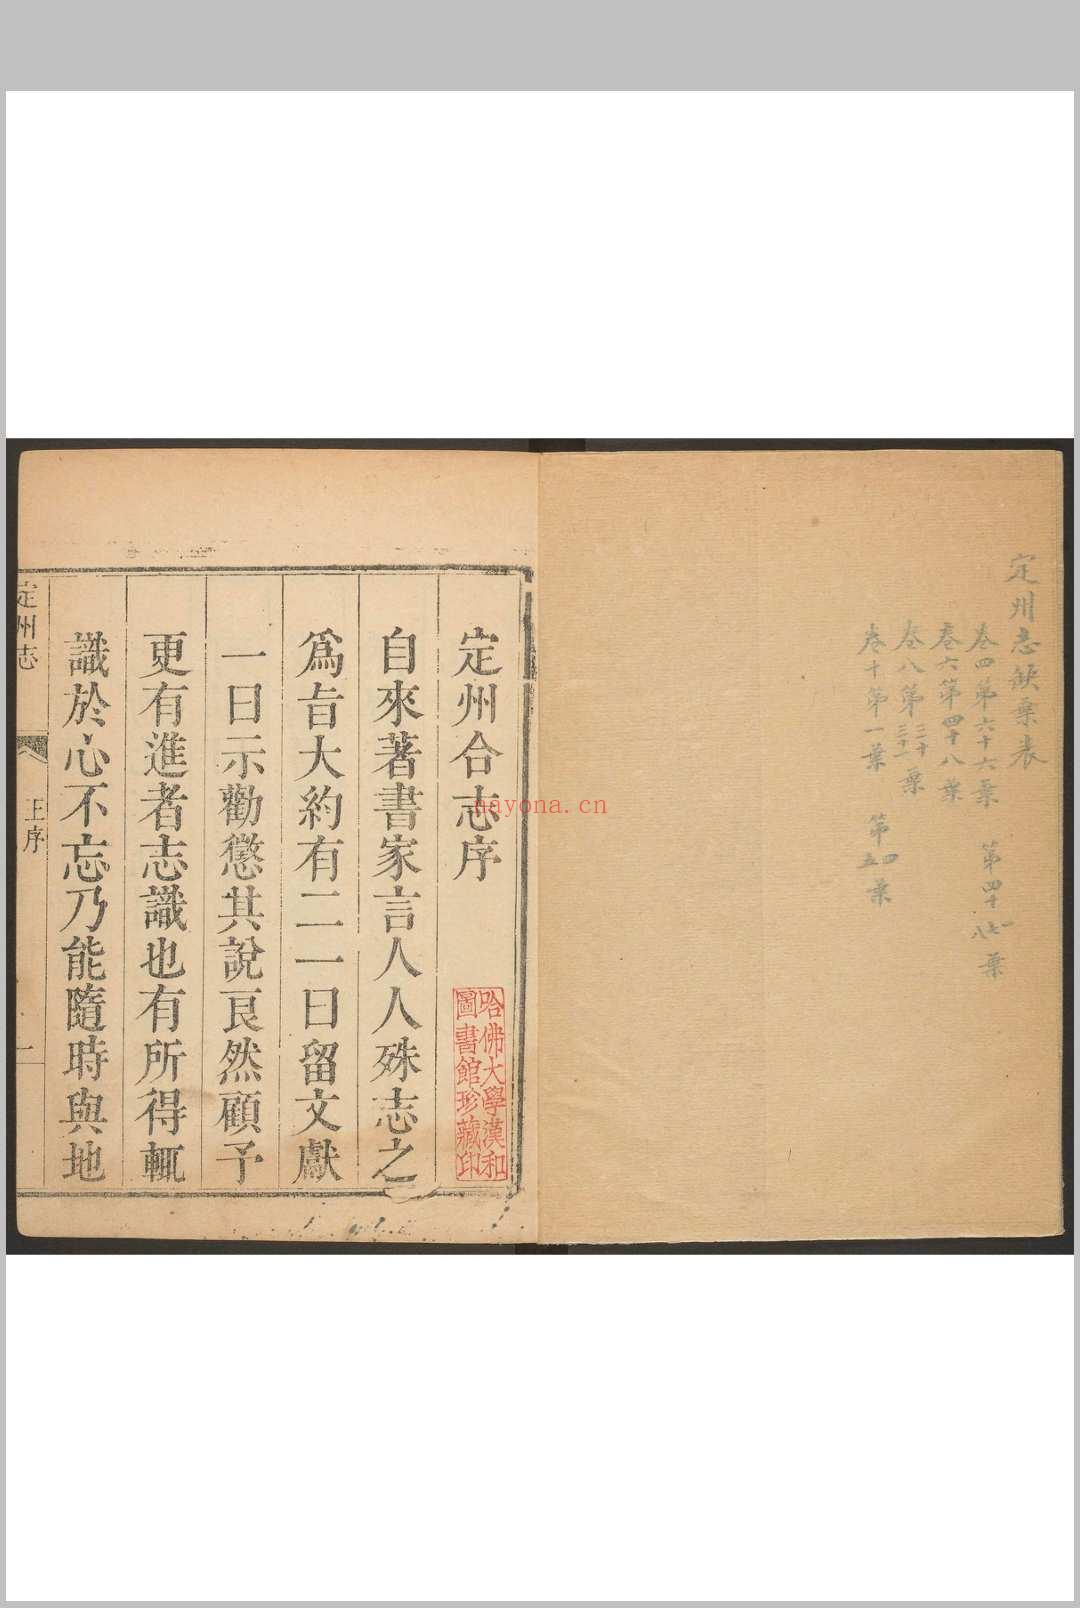 定州志缺葉表
卷四第六十六葉 第四十七八葉
卷六第四十八葉
卷八第三十三十一葉
卷十第一葉 第四五葉
定州合志序
哈佛大學漢和
圖書館珍藏印
自來著書家言人人殊志之
爲旨大約有二一曰留文獻
一曰示勸懲其說良然顧予
更有進者志識也有所得輒
識於心不忘乃能隨時與地
定州志
王序
一
nayona.cn